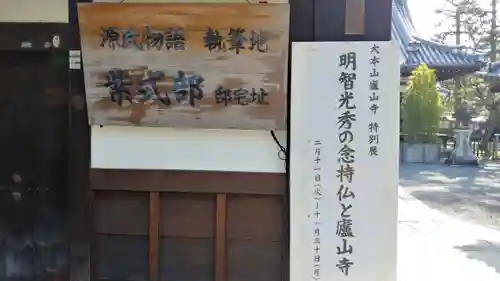 源氏物語 執筆地
紫式部 邸宅址
大本山廬山寺 特別展
明智光秀の念持仏と廬山寺
二月十一日(火)〜十一月三十日(月)